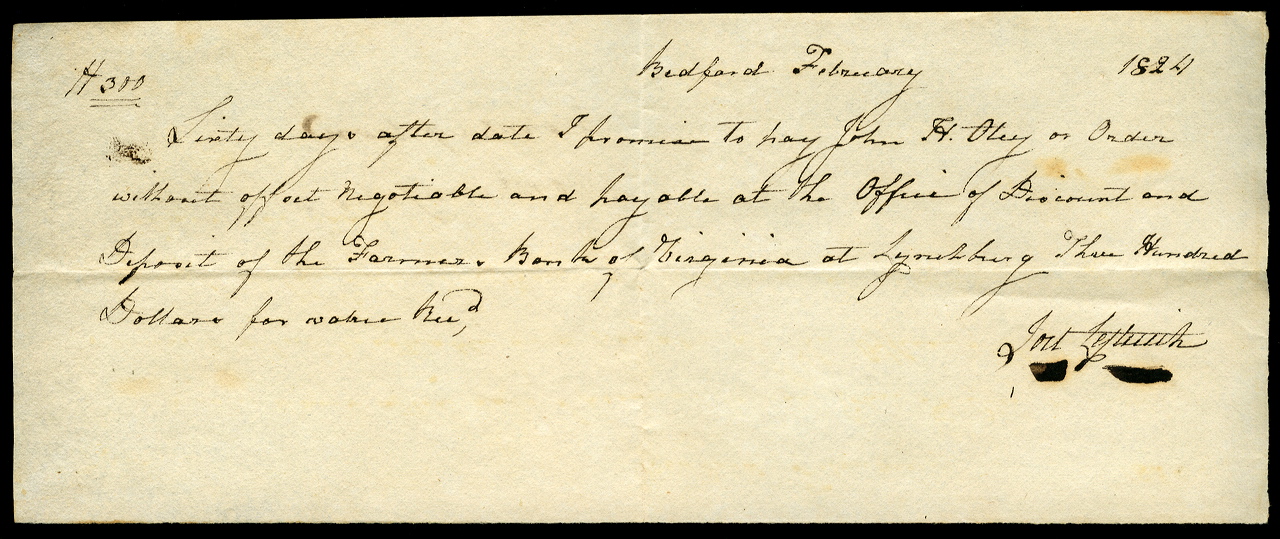 Bedford February 1824
$300
Sixty days after date I promise to pay John H. Otey or Order
without offset Negotiable and payable at the Office of Discount and
Deposit of the Farmers Bank of Virginia at Lynchburg Three Hundred
Dollars for value Recd,
Leftwich